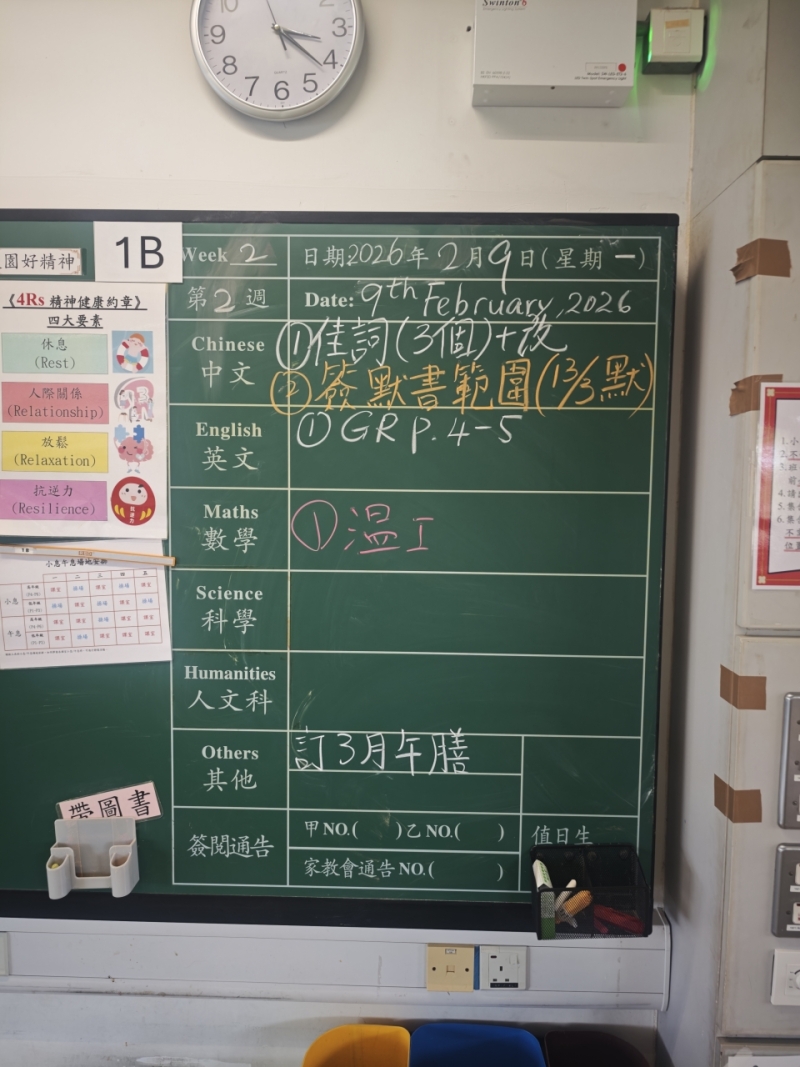 10 2 3 4 5 6 7 8 9
Swinton
園好精神
1B
《4Rs 精神健康約章》
四大要素
休息
(Rest)
人際關係
(Relationship)
放鬆
(Relaxation)
抗逆力
(Resilience)
小息
午息
一 二 三 四 五
帶圖書
Week 2 日期:2026年2月9日(星期一)
第2週 Date: 9th February, 2026
Chinese
中文
①佳詞(3個)+反
②簽默書範圍(13/3默)
English
英文
①GR P.4-5
Maths
數學
①溫工
Science
科學
Humanities
人文科
Others
其他
訂3月午膳
簽閱通告
甲NO.( )乙NO.( )
家教會通告NO.( )
值日生